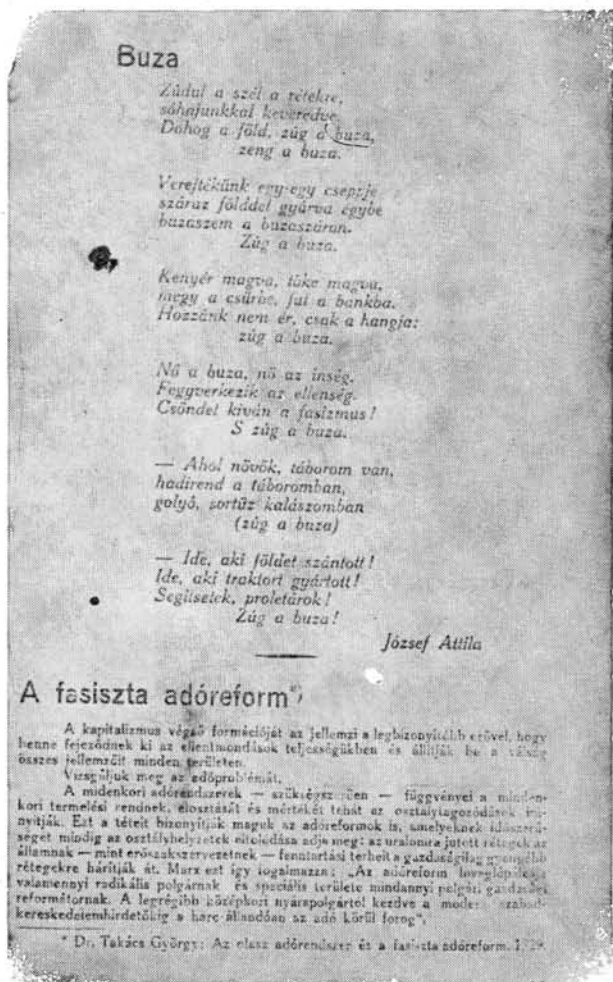 Buza
Zúdul a szél a rétekre,
sóhajunkkal keveredve.
Dohog a föld, zúg a buza,
zeng a buza.
Verejtékünk egy-egy cseppje
száraz földdel gyúrva egybe
buzaszem a buzaszáron.
Zúg a buza.
Kenyér magva, tőke magva,
megy a csűrbe, fut a bankba.
Hozzánk nem ér, csak a hangja:
zúg a buza.
Nő a buza, nő az inség.
Fegyverkezik az ellenség.
Csöndet kiván a fasizmus!
S zúg a buza.
— Ahol növök, táborom van,
hadirend a táboromban,
golyó, sortűz kalászomban
(zúg a buza)
— Ide, aki földet szántott!
Ide, aki traktort gyártott!
Segitsetek, proletárok!
Zúg a buza!
József Attila
A fasiszta adóreform*)
A kapitalizmus végső formációját az jellemzi a legbizonyitóbb erővel, hogy
benne fejeződnek ki az ellentmondások teljességükben és állitják be a válság
összes jellemzőit minden területen.
Vizsgáljuk meg az adóproblémát.
A midenkori adórendszerek — szükségszerűen — függvényei a minden-
kori termelési rendnek, elosztását és mértékét tehát az osztálytagozódások irá-
nyitják. Ezt a tételt bizonyitják maguk az adóreformok is, amelyeknek időszerű-
ségét mindig az osztályhelyzetek eltolódása adja meg: az uralomra jutott rétegek az
államnak — mint erőszakszervezetnek — fenntartási terheit a gazdaságilag gyengébb
rétegekre háritják át. Marx ezt igy fogalmazza: „Az adóreform lovaglópálcája
valamennyi radikális polgárnak és speciális területe mindannyi polgári gazdasági
reformátornak. A legrégibb középkori nyárspolgártól kezdve a modern szabad-
kereskedelemhirdetőkig a harc állandóan az adó körül forog",
* Dr. Takács György: Az olasz adórendszer és a fasiszta adóreform.